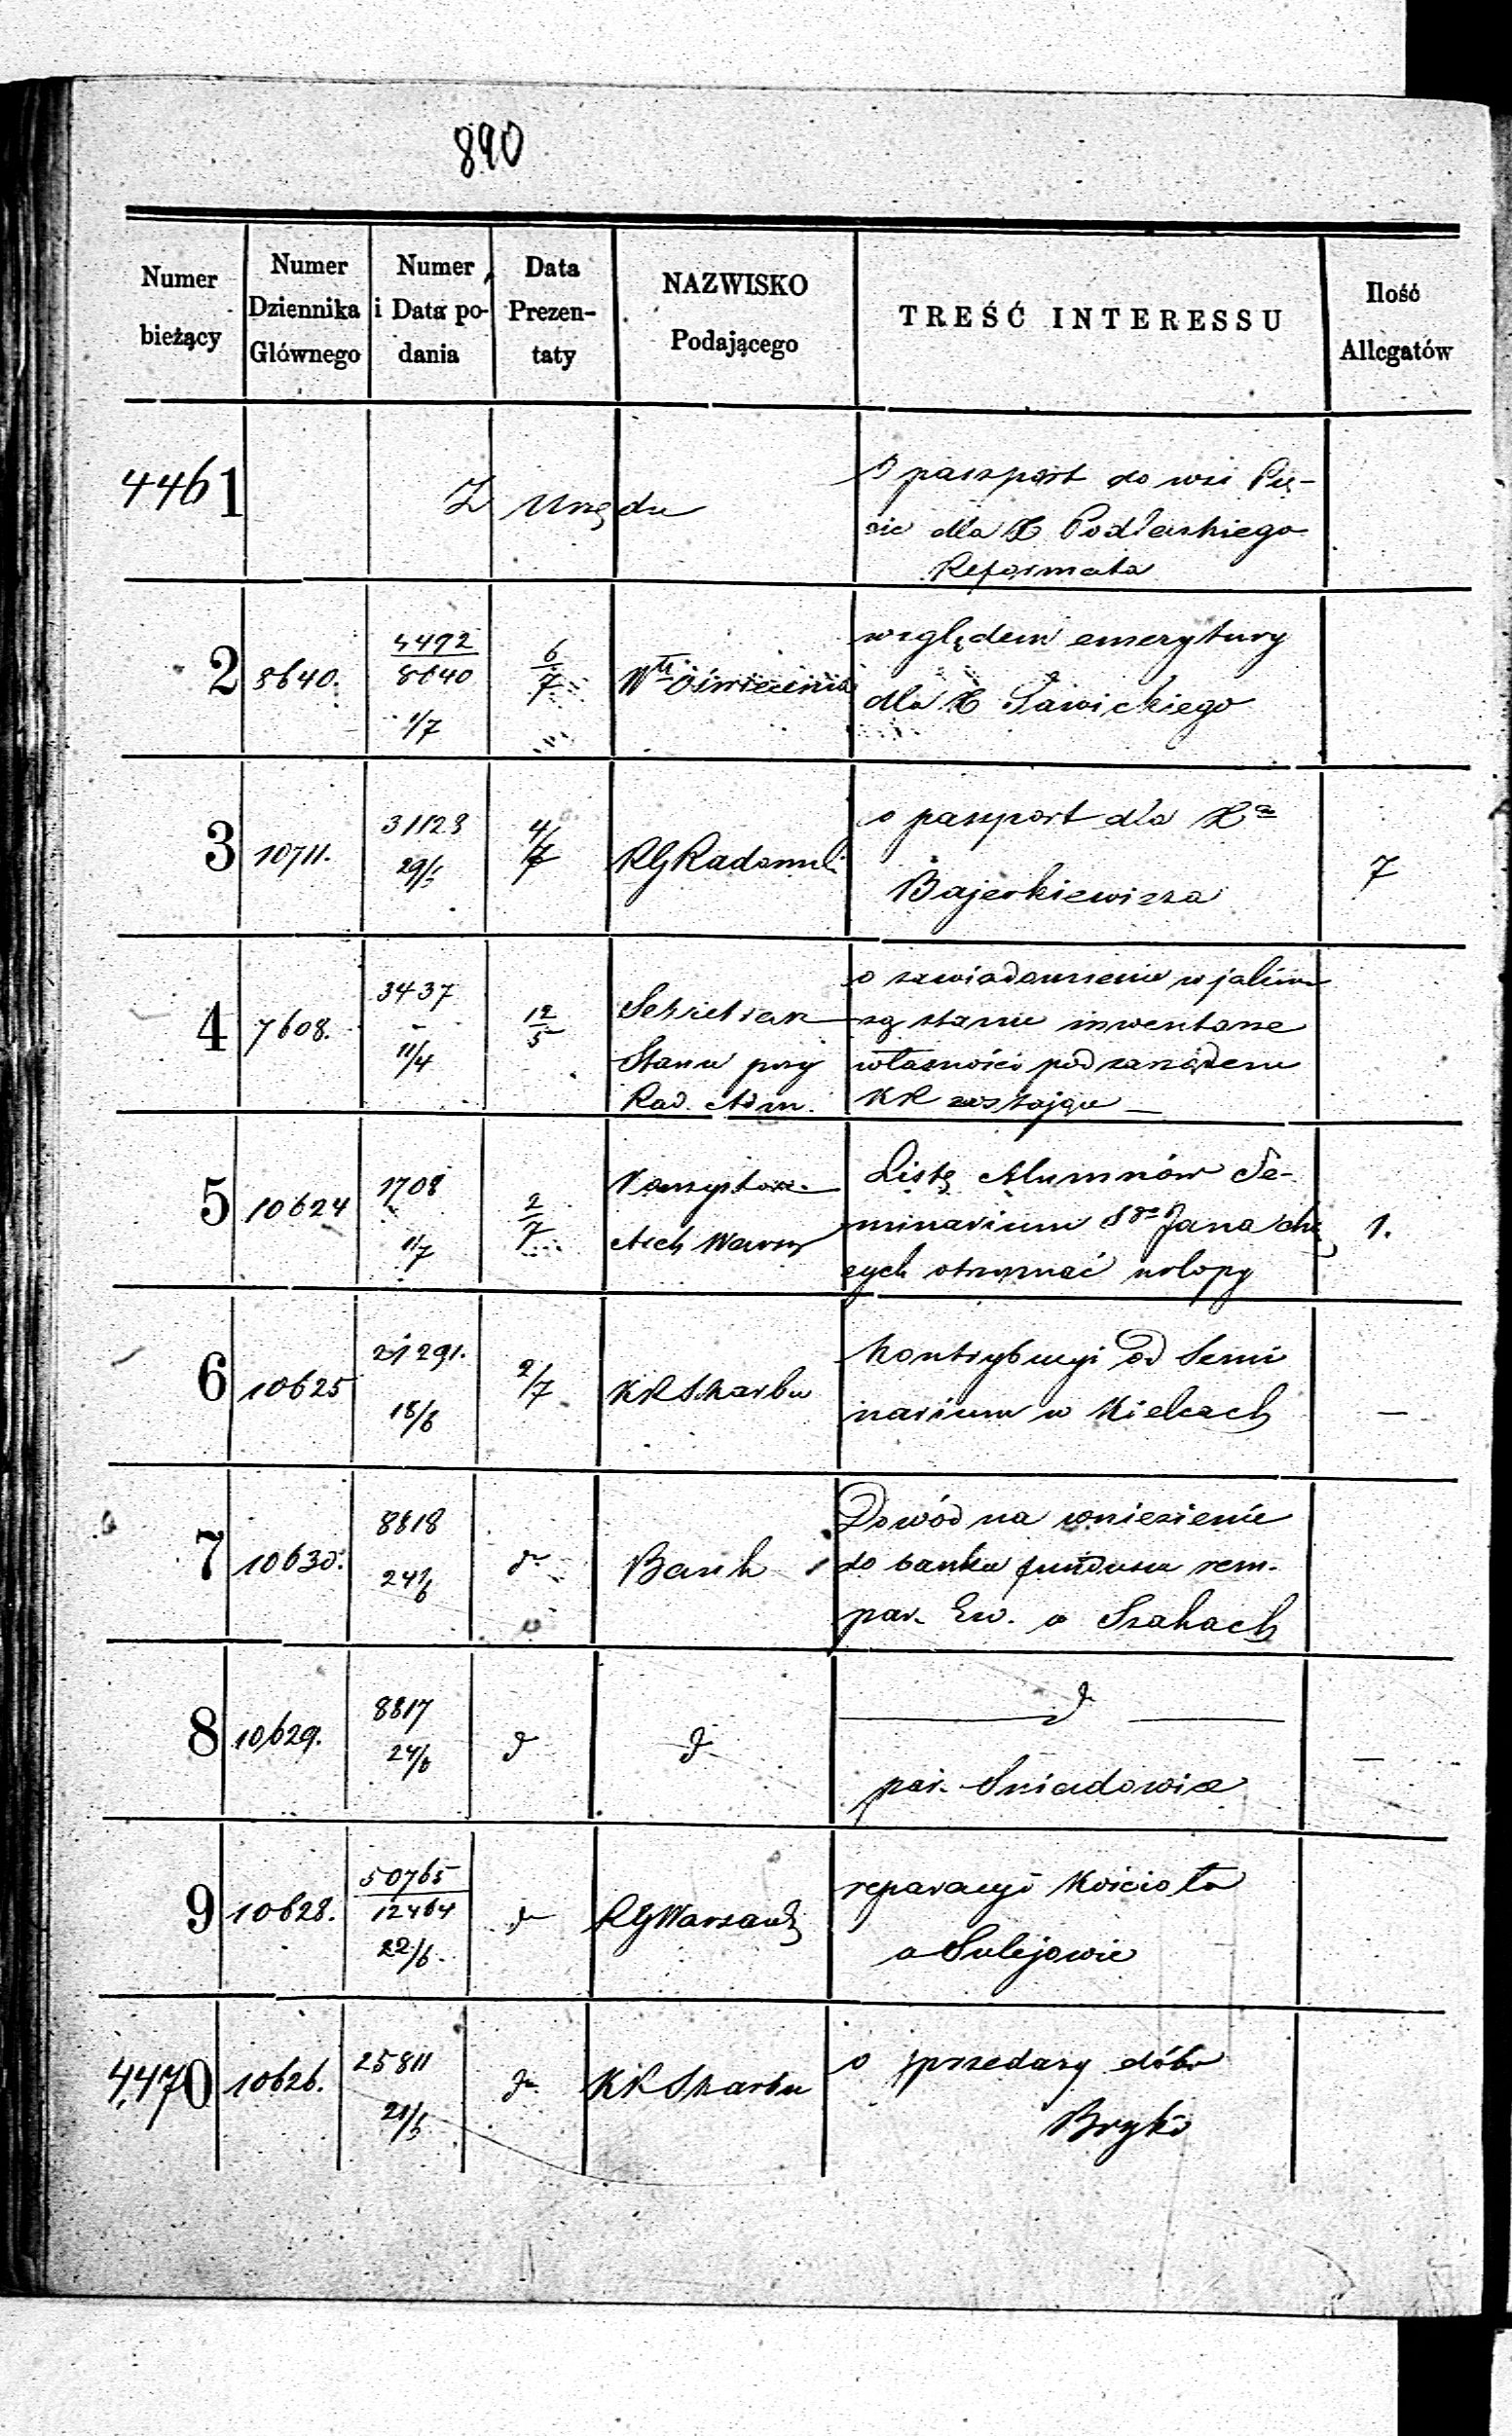 890
Numer bieżący
Numer Dziennika Głównego
Numer i Data podania
Data Prezentaty
NAZWISKO Podającego
TREŚĆ INTERESSU
Ilość Allegatów
4461
Z Urzędu
o paszport do wsi
dla X Podlaskiego
Reformata
2
8640.
8640
1/7
6/7
Oświecenia
względem emerytury
dla X Sawickiego
3
10711.
31128
4/7
RG Radomsk
o paszport dla Xa
Bajerkiewicza
7
4
7608.
3437
-
11/4
12/5
Sekretarz
Stanu przy
Rad. Adm.
o zawiadomienie w jakim
są stanie inwentarze
własności pod zarządem
KR zostające —
5
10624
1708
1/7
2/7
Konsystorz
Arch Warsz
Listę Alumnów Se-
minarium Sgo Jana chc
cych otrzymać urlopy
1.
6
10625
21291.
18/6
2/7
KR Skarbu
Kontrybucyi od Semi
narium w Kielcach
—
7
10630.
8818
24/6
do
Bank
Dowód na wniesienie
do banku funduszu rem.
par. Ew. w Szakach
8
10629.
8817
24/6
do
do
— do —
par. Sniadowie
—
9
10628.
50765
12464
22/6.
do
RG Warszawsk
reparacyi Kościoła
w Sulejowie
4,470
10626.
25811
do
KR Skarbu
o sprzedaży dóbr
Bryki